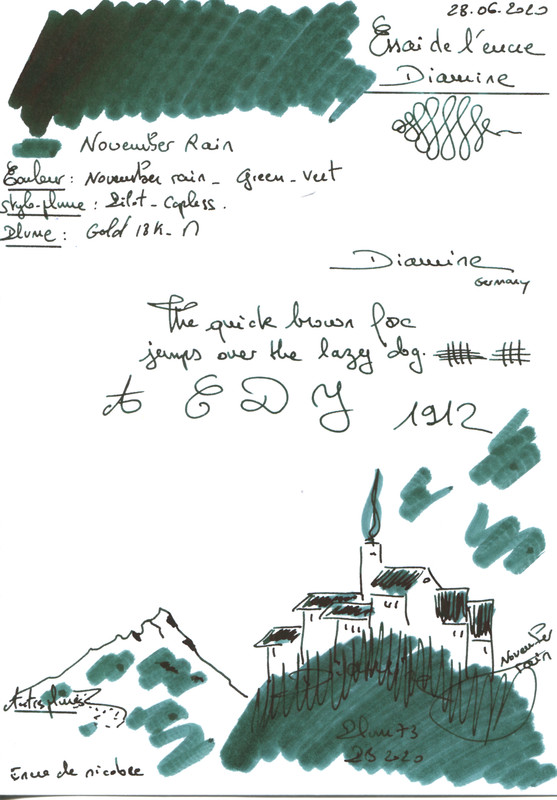 28.06.2020
Essai de l'encre
Diamine
November Rain
Couleur : November rain - Green - Vert
stylo-plume : Pilot - Capless.
Plume : Gold 18K - M
Diamine
Germany
The quick brown fox
jumps over the lazy dog.
A E D Y 1912
November
rain
Diamine
Plum73
2020
Encre de nicobee